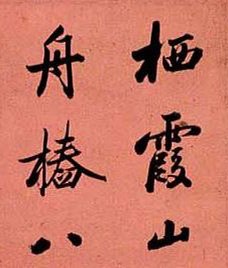 栖霞山
舟椿八